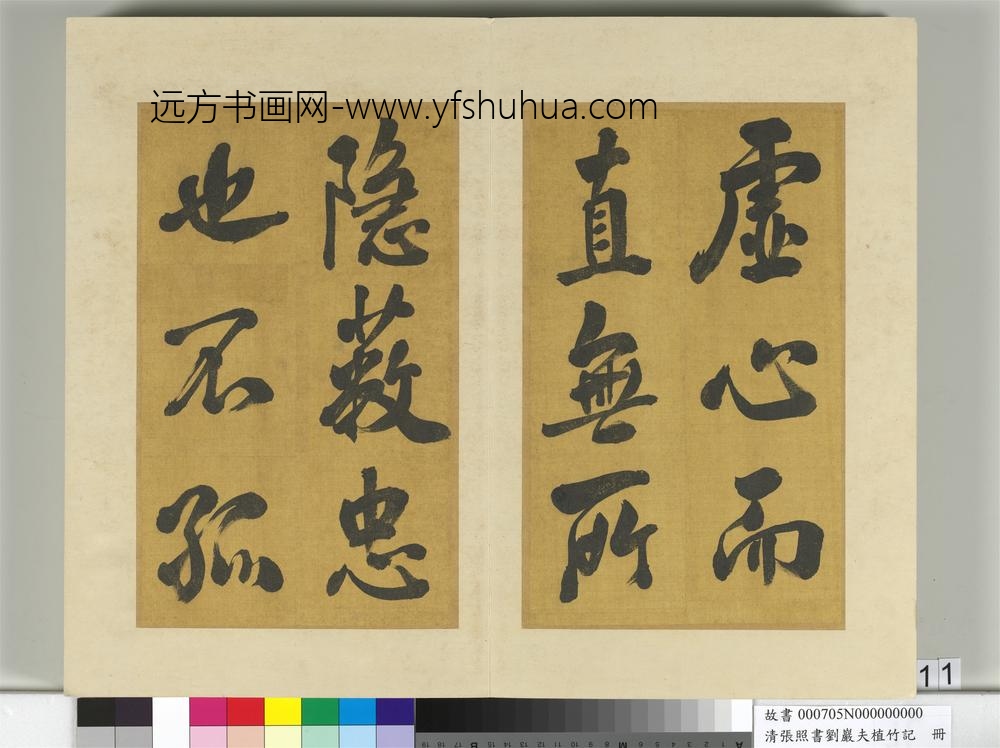 远方书画网-www.yfshuhua.com
虛心而
直無所
隱蔽忠
也不孤
11
故書 000705N000000000
清張照書劉巖夫植竹記 冊